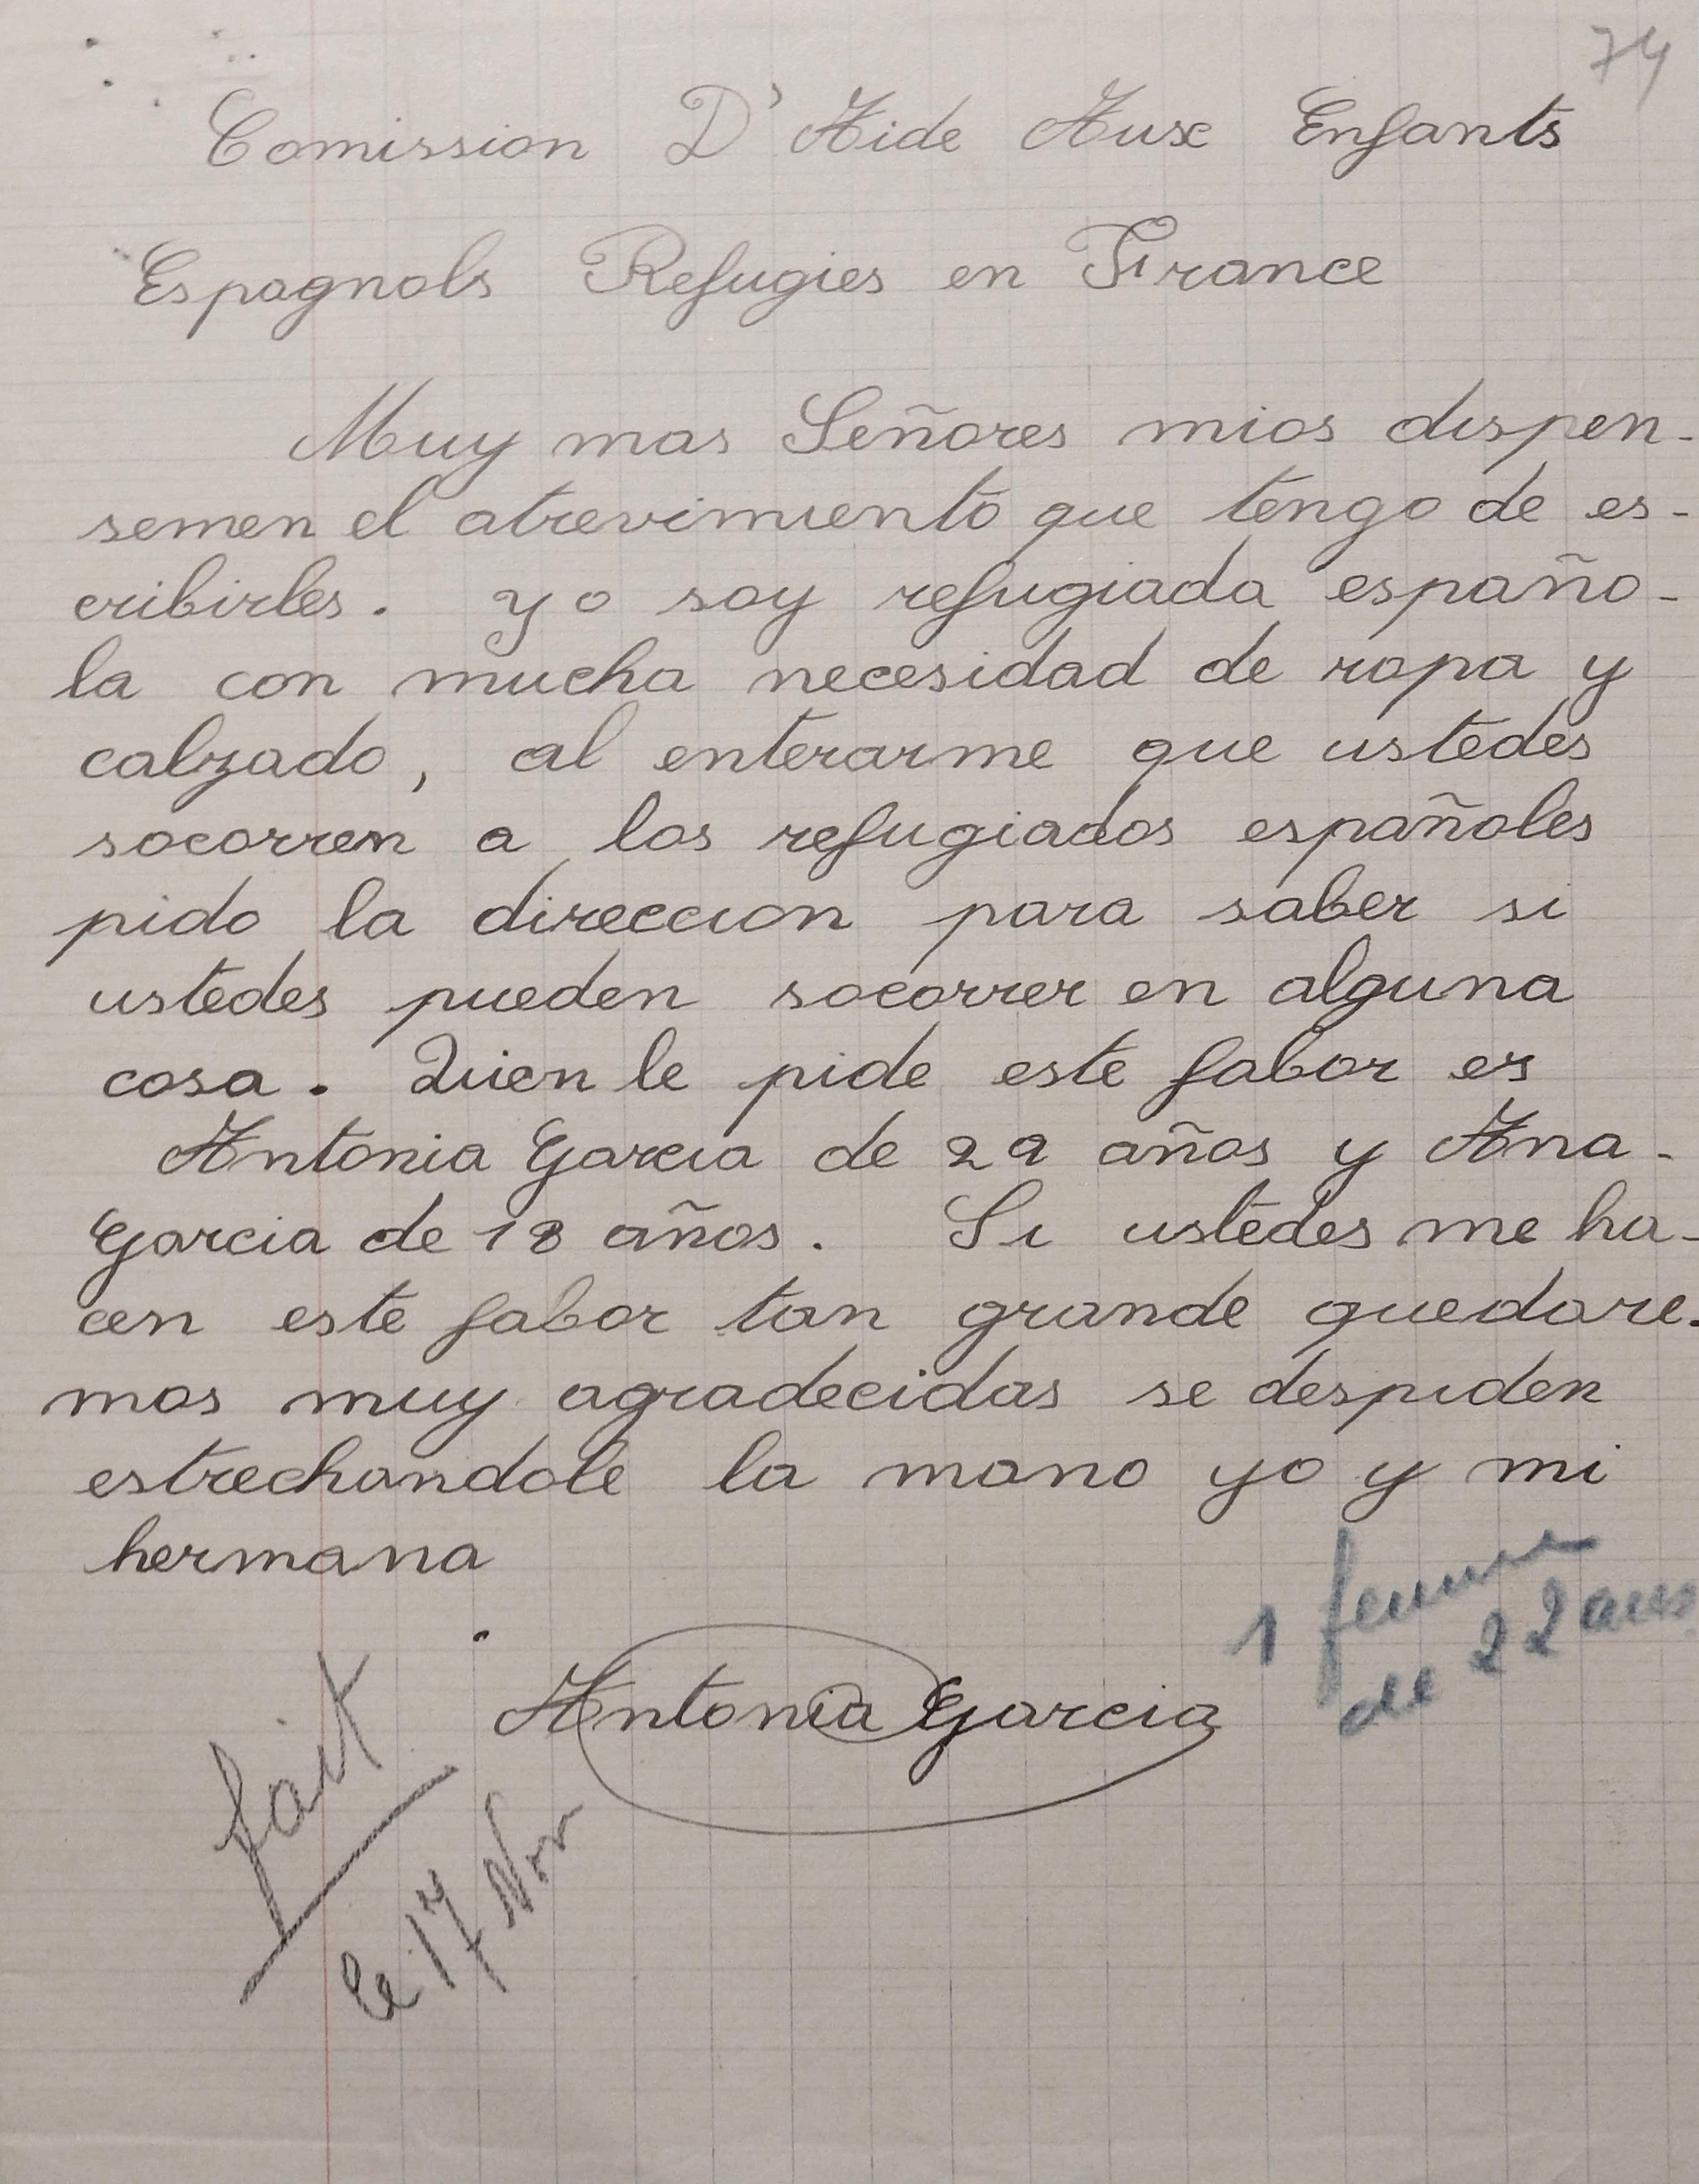 74
Comission D'Aide Aux Enfants
Espagnols Refugies en France
Muy mas Señores mios dispen-
semen el atrevimiento que tengo de es-
cribirles. yo soy refugiada españo-
la con mucha necesidad de ropa y
calzado, al enterarme que ustedes
socorren a los refugiados españoles
pido la direccion para saber si
ustedes pueden socorrer en alguna
cosa. Quien le pide este fabor es
Antonia Garcia de 22 años y Ana-
Garcia de 18 años. Si ustedes me ha-
cen este fabor tan grande quedare-
mos muy agradecidas se despiden
estrechandole la mano yo y mi
hermana
1 femme
de 22 ans
Antonia Garcia
fait
le 17 Nov